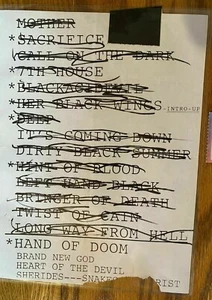 MOTHER
*SACRIFICE
CALL ON THE DARK
*7TH HOUSE
*BLACKACIDEVIL
*HER BLACK WINGS INTRO-UP
*DEEP
IT'S COMING DOWN
DIRTY BLACK SUMMER
*HINT OF BLOOD
LEFT HAND BLACK
BRINGER OF DEATH
TWIST OF CAIN
LONG WAY FROM HELL
*HAND OF DOOM
BRAND NEW GOD
HEART OF THE DEVIL
SHERIDES---SNAKES RIST